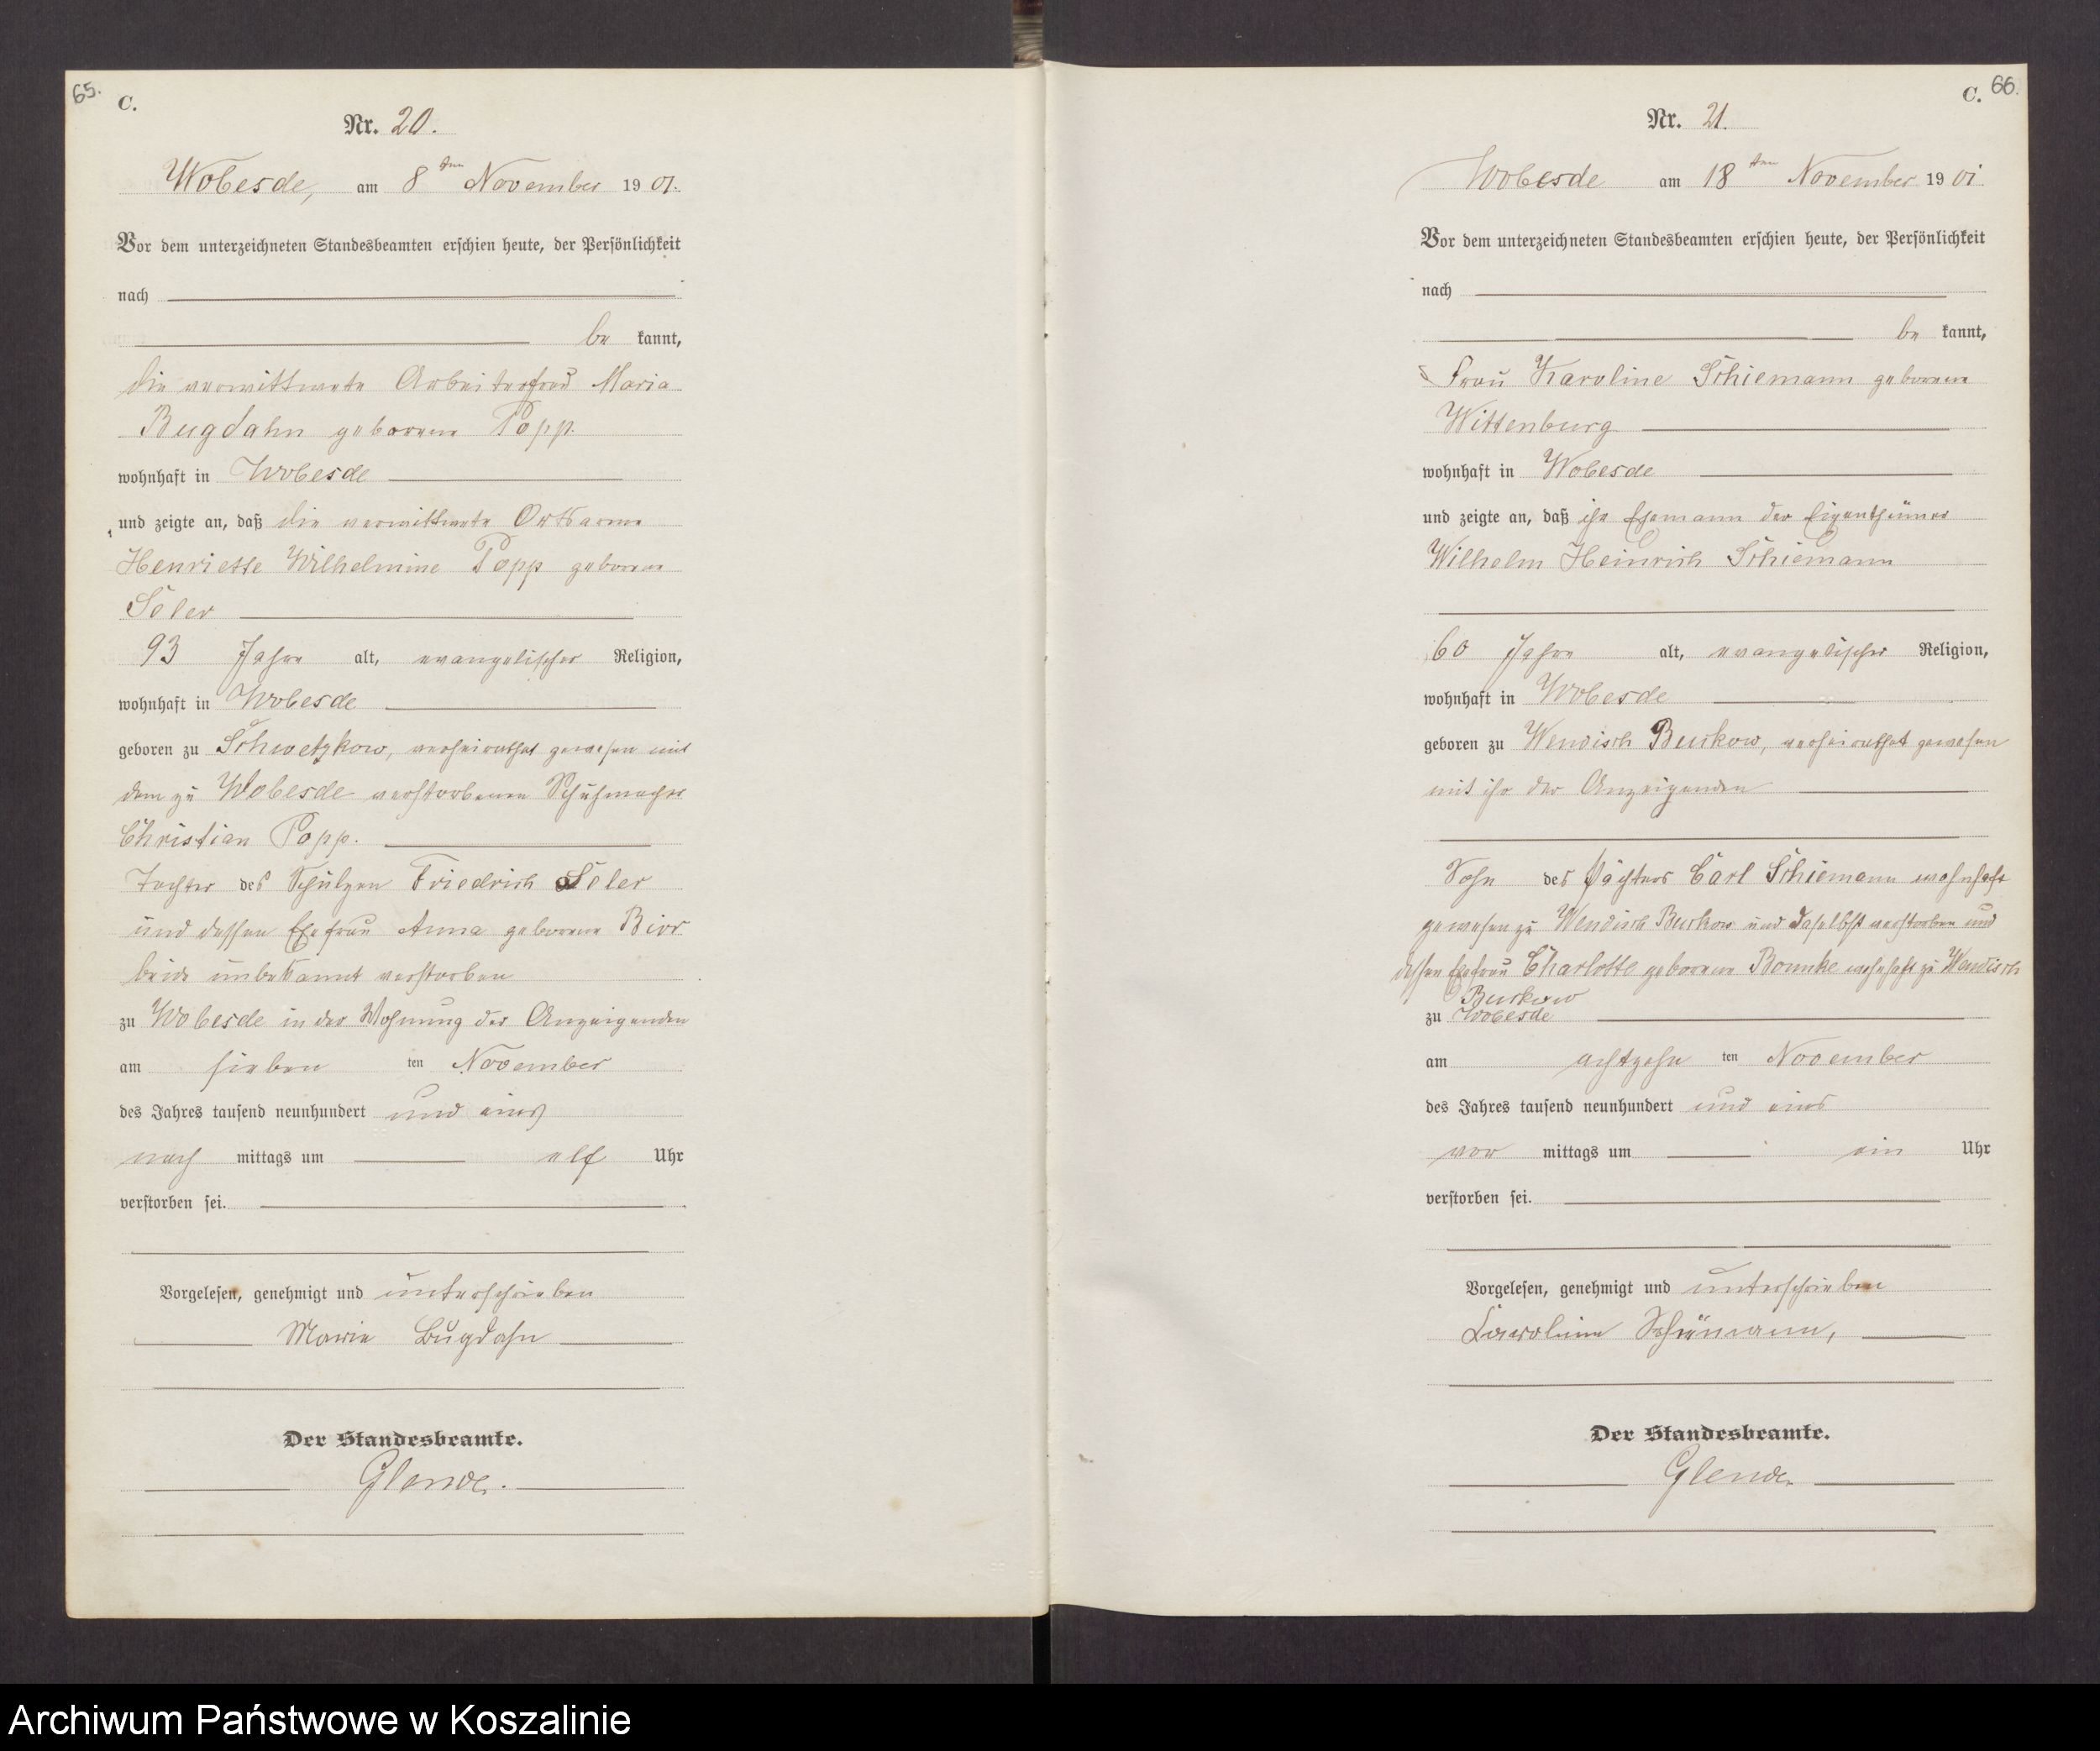 65.
C.
Nr. 20.
Wobesde, am 8ten November 1901.
Vor dem unterzeichneten Standesbeamten erschien heute, der Persönlichkeit
nach
be kannt,
die verwittwete Arbeiterfrau Maria
Bugdahn geborene Popp.
wohnhaft in Wobesde
und zeigte an, daß die verwittwete Ortsarme
Henriette Wilhelmine Popp geborene
Söler
93 Jahre alt, evangelischer Religion,
wohnhaft in Wobesde
geboren zu Schwetzkow, verheirathet gewesen mit
dem zu Wobesde verstorbenen Schuhmacher
Christian Popp.
Tochter des Schulzen Friedrich Söler
und dessen Ehefrau Anna geborene
beide unbekannt verstorben
zu Wobesde in der Wohnung der Anzeigenden
am sieben ten November
des Jahres tausend neunhundert und eins
nach mittags um elf Uhr
verstorben sei.
Vorgelesen, genehmigt und unterschrieben
Marie Bugdahn
Der Standesbeamte.
Glende.
C. 66.
Nr. 21.
Wobesde am 18ten November 1901
Vor dem unterzeichneten Standesbeamten erschien heute, der Persönlichkeit
nach
be kannt,
Frau Karoline Schiemann geborene
Wittenburg
wohnhaft in Wobesde
und zeigte an, daß ihr Ehemann der Eigenthümer
Wilhelm Heinrich Schiemann
60 Jahre alt, evangelischer Religion,
wohnhaft in Wobesde
geboren zu Wendisch Buckow, verheirathet gewesen
mit ihr der Anzeigenden
Sohn des Pächters Carl Schiemann wohnhaft
gewesen zu Wendisch Buckow und daselbst verstorben und
dessen Ehefrau Charlotte geborene wohnhaft zu Wendisch
Buckow
zu Wobesde
am achtzehn ten November
des Jahres tausend neunhundert und eins
vor mittags um ein Uhr
verstorben sei.
Vorgelesen, genehmigt und unterschrieben
Karoline Schiemann,
Der Standesbeamte.
Glende.
Archiwum Państwowe w Koszalinie